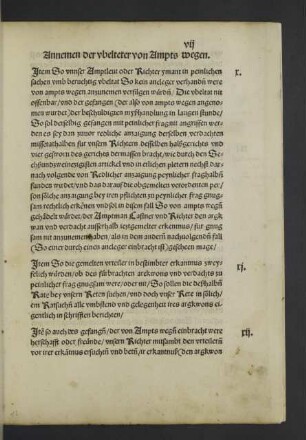 vij
Annemen der vbelteter von Ampts wegen.
Jtem So vnnser Amptleut oder Richter ymant in peinlichen x.
sachen vmb berüchtig vbeltat So kein ancleger verhandñ were
von ampts wegen annemen
offenbar/ vnd der gefangen (der also von ampts wegen angenomen
wurdet) der beschuldigten myßhandlung in laugen stunde/
So sol derselbig gefangen mit peinlicher frag nit angriffen werden
es sey dan zuuor redliche antzaigung derselben verdachten
missetathalben für vnsern Richtern desselben halßgerichts vnd
vier geschworn des gerichts
artickel vnd in etlichen
nachuolgen von Redlicher antzaigung peynlicher fraghalbñ
funden wurdet/ vnd das darauf die obgemelten verordenten personen
solch antzaigung bey iren pflichten zu peynlicher frag gnugsam
rechtlich erkenen vnd sol in disem fall So von ampts wegñ
gehandelt würdet/ der Amptman Castner vnd Richter den argkwan
vnd verdacht ausserhalb ietzgemelter erkentnus/ für gnugsam
nit annemen haben/ als in dem andern nachuolgenden fall
(So einer durch einen ancleger einbracht ist) gescheen mage/
Jtem So die gemelten vrteiler in bestimbter erkantnus zweyfelich xj.
würdñ/ ob des fürbrachten argkwons vnd verdachts
zu peinlicher frag gnugsam were/ oder nit/ So sollen die deßhalbñ
Rate bey vnsern Reten suchen/ vnd doch vnser Rete in solichem
Ratsuchen alle vmbstend vnd gelegenheit ires argkwons
eigentlich in schrifften berichten/
Jtē so auch des gefangñ/ der von Ampts wegñ einbracht were xij.
herschafft oder freünde/ vnsern Richter mitsambt den vrteilern
vor irer erkātnus ersuchen vnd betñ/ in erkantnuß den argkwon